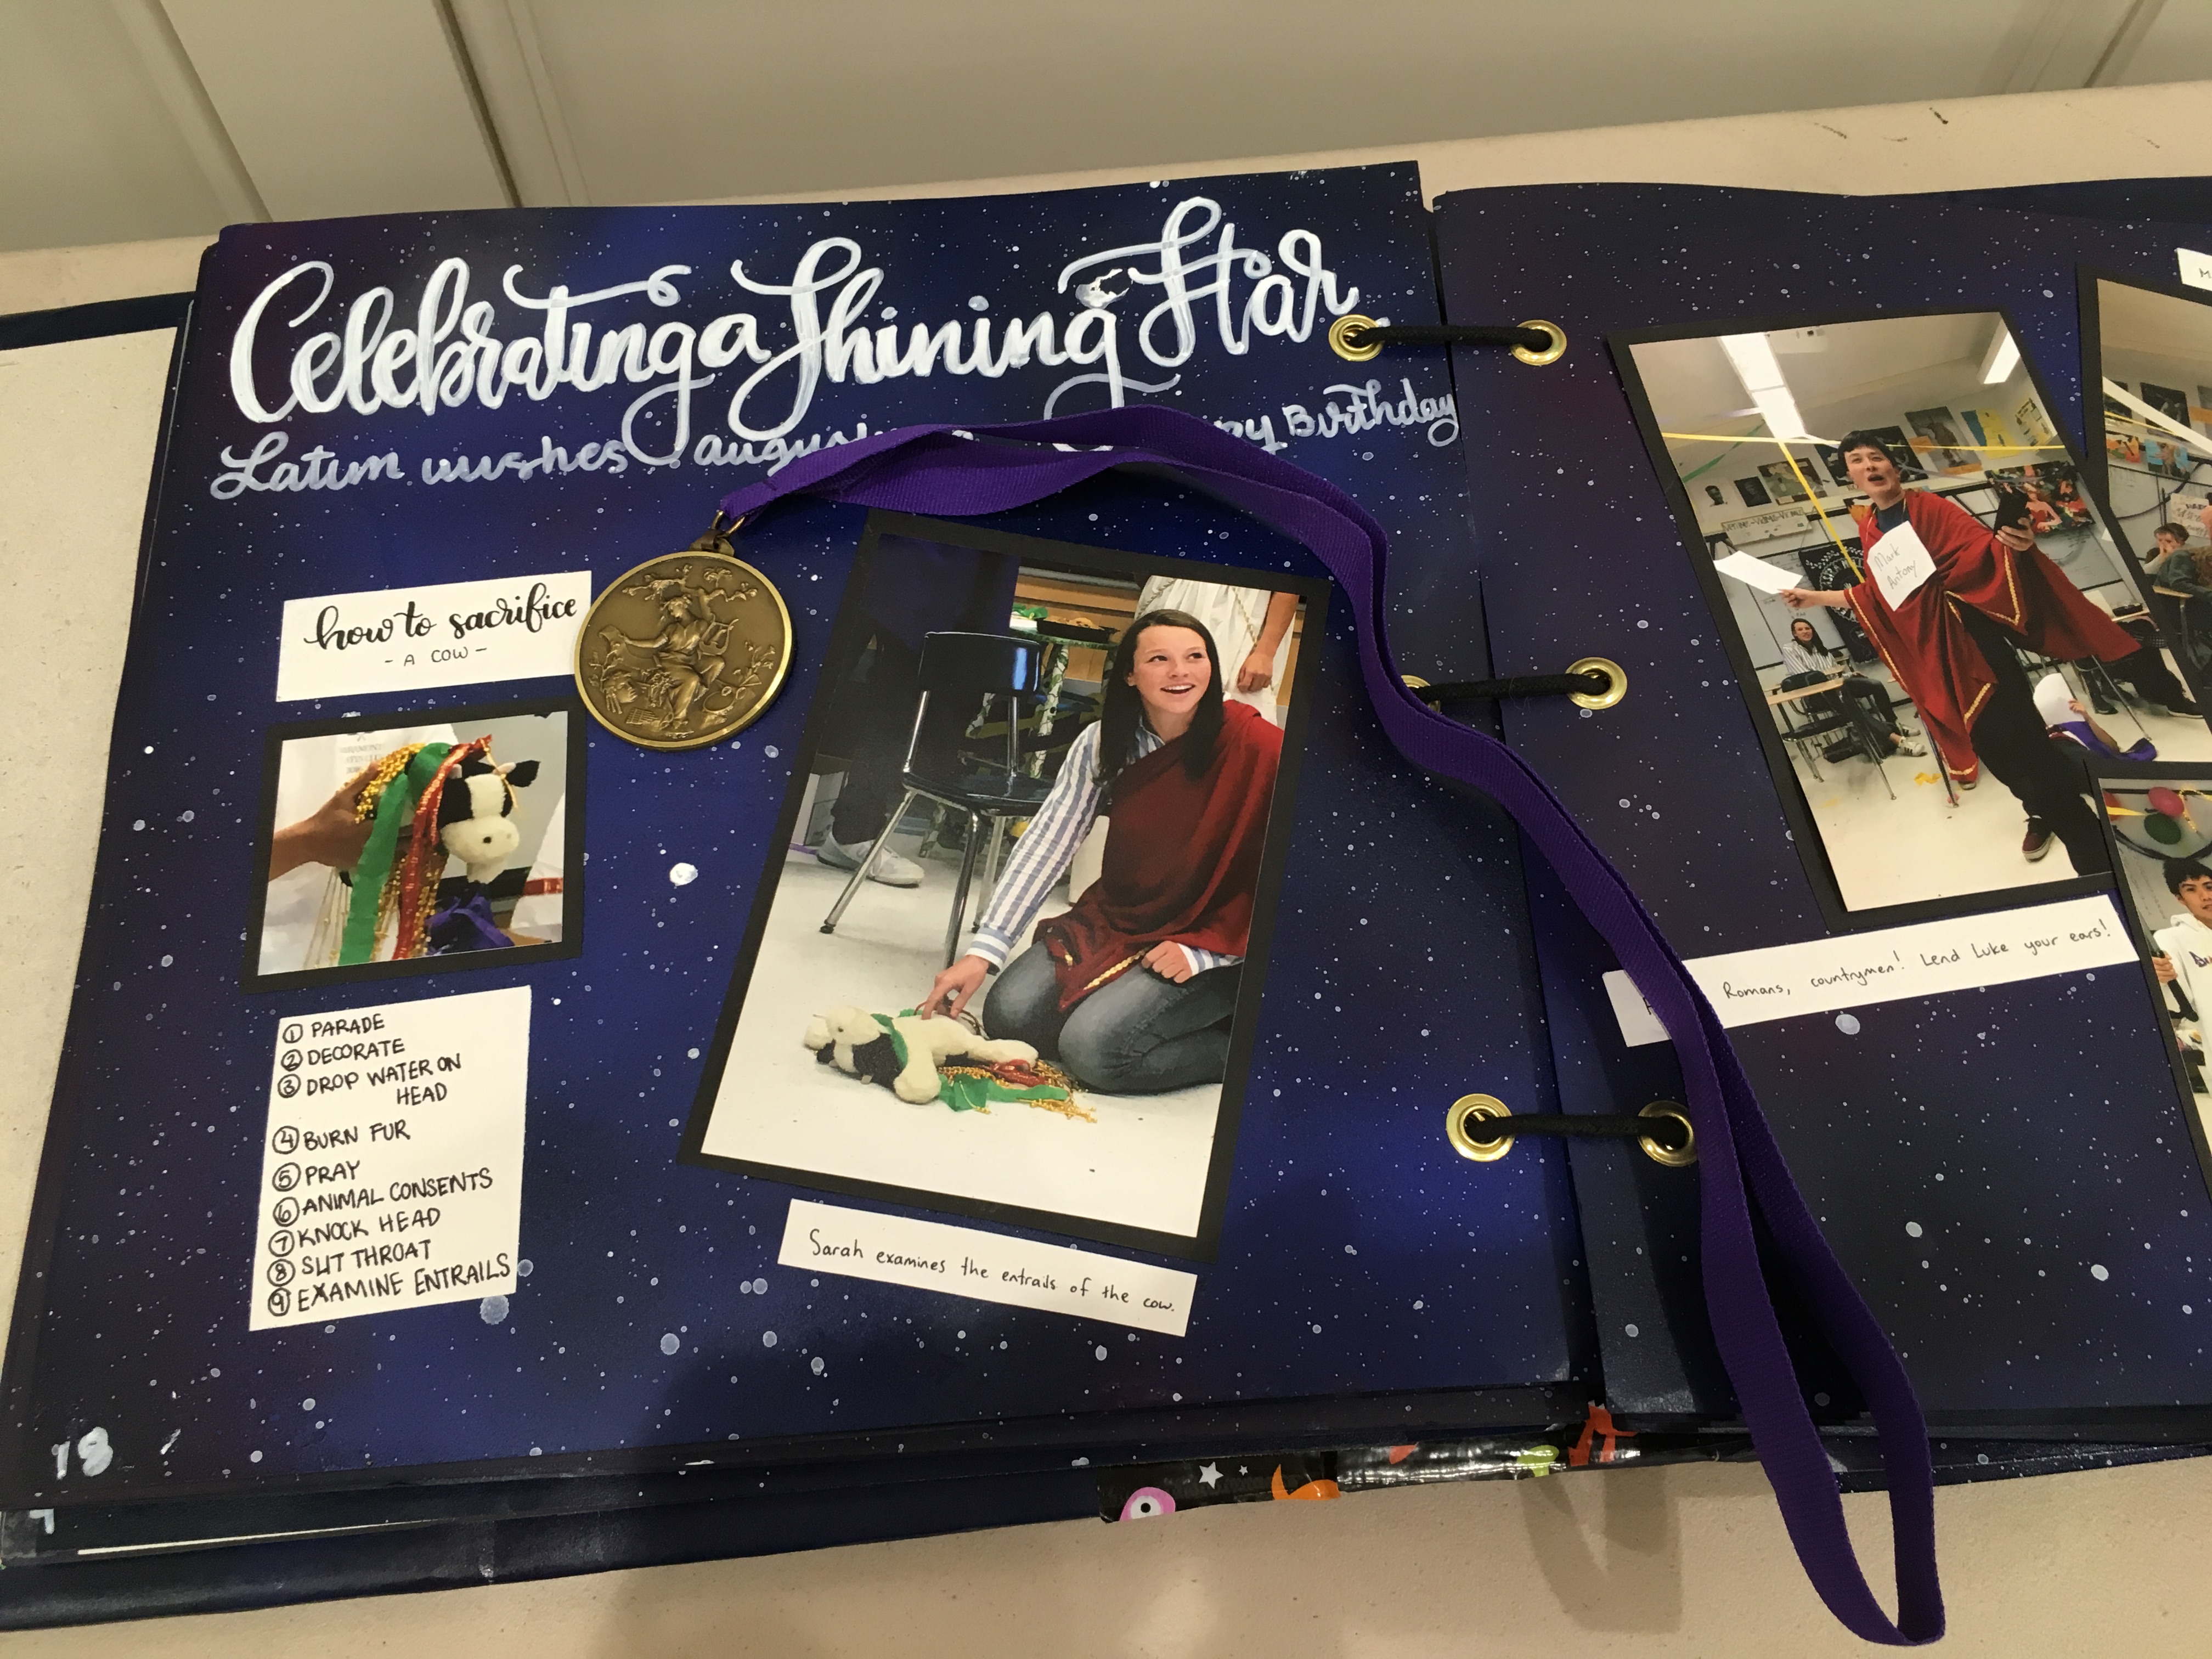 Celebrating a Shining Star
Latin wishes Birthday
how to sacrifice
- A COW -
① PARADE
② DECORATE
③ DROP WATER ON
HEAD
④ BURN FUR
⑤ PRAY
⑥ ANIMAL CONSENTS
⑦ KNOCK HEAD
⑧ SLIT THROAT
⑨ EXAMINE ENTRAILS
Sarah examines the entrails of the cow.
18
Mark
Antony
Romans, countrymen! Lend Luke your ears!